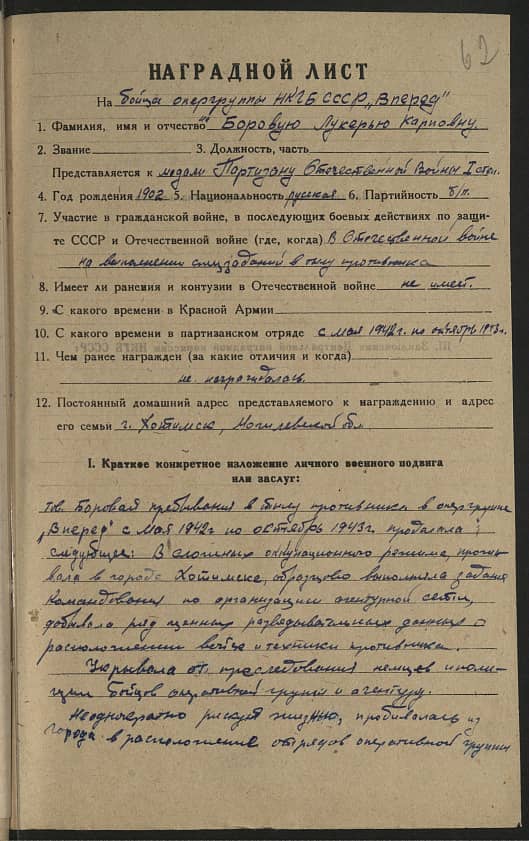 62
НАГРАДНОЙ ЛИСТ
На бойца опергруппы НКГБ СССР „Вперед"
1. Фамилия, имя и отчество Боровую Лукерью Карповну
2. Звание 3. Должность, часть
Представляется к медали Партизану Отечественной Войны I степ.
4. Год рождения 1902 5. Национальность русская 6. Партийность б/п.
7. Участие в гражданской войне, в последующих боевых действиях по защи-
те СССР и Отечественной войне (где, когда) В Отечественной войне
на выполнении спецзаданий в тылу противника
8. Имеет ли ранения и контузии в Отечественной войне не имеет.
9. С какого времени в Красной Армии
10. С какого времени в партизанском отряде с мая 1942г. по октябрь 1943г.
11. Чем ранее награжден (за какие отличия и когда)
не награждалась
12. Постоянный домашний адрес представляемого к награждению и адрес
его семьи г. Хотимск, Могилевской обл.
I. Краткое конкретное изложение личного военного подвига
или заслуг:
тов. Боровая пребывания в тылу противника в опергруппе
„Вперед" с мая 1942г по октябрь 1943г. проделала
следующее: В сложных оккупационного режима, прожи-
вала в городе Хотимске, образцово выполняла задания
командования по организации агентурной сети,
добывала ряд ценных разведывательных данных о
расположении войск и техники противника.
Укрывала от преследования немцев и поли-
ции бойцов оперативной группы и агентуру.
Неоднократно рискуя жизнью, пробивалась из
города в расположение отрядов оперативной группы